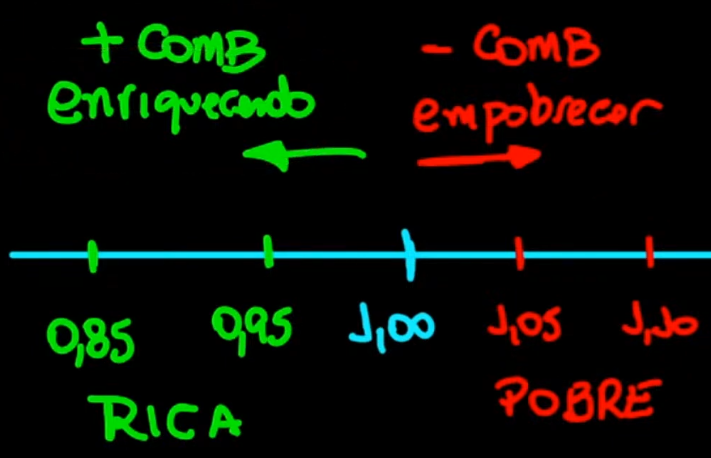 + COMB
enriquecendo
- COMB
empobrecer
0,85
0,95
1,00
1,05
1,10
RICA
POBRE